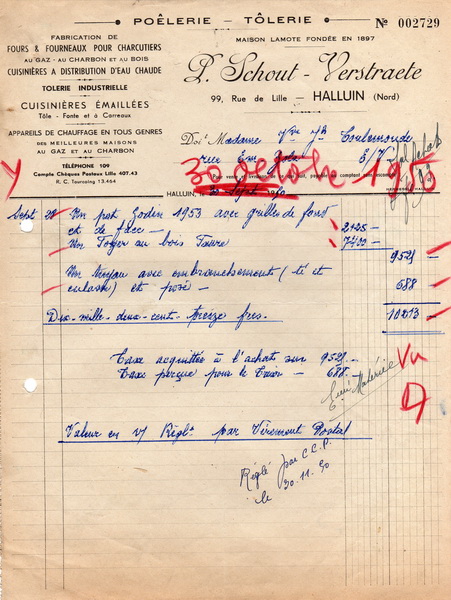 POÊLERIE — TÔLERIE
N° 002729
FABRICATION DE
FOURS & FOURNEAUX POUR CHARCUTIERS
AU GAZ - AU CHARBON ET AU BOIS
CUISINIÈRES A DISTRIBUTION D'EAU CHAUDE
TOLERIE INDUSTRIELLE
CUISINIÈRES ÉMAILLÉES
Tôle - Fonte et à Carreaux
APPAREILS DE CHAUFFAGE EN TOUS GENRES
DES MEILLEURES MAISONS
AU GAZ ET AU CHARBON
TÉLÉPHONE 109
Compte Chèques Postaux Lille 407.43
R. C. Tourcoing 13.464
MAISON LAMOTE FONDÉE EN 1897
P. Schout - Verstraete
99, Rue de Lille — HALLUIN (Nord)
Doit Madame Vve Jh Coulemonde
rue Em. Zola E/V
30 sept 1950
HALLUIN, le
Sept. 29 Un pot Godin 1953 avec grilles de fond
et de face 2125 —
Un Foyer au bois Faure 7400 —
9525 —
Un tuyau avec embranchement (té et
culasse) et posé — 688 —
Dix-mille-deux-cent-treize frcs. 10213 —
Taxe acquittée à l'achat sur 9525 —
Taxe perçue pour le Trésor — 688 —
Vu
Valeur en v/ Règlt par Virement Postal
Réglé par C.C.P.
le 30.11.50